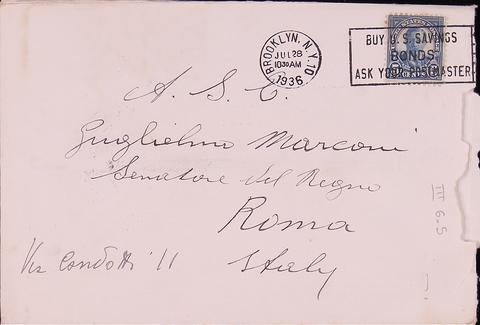 BROOKLYN, N.Y. 10
JUL 28
10 30 AM
1936
BUY U.S. SAVINGS
BONDS
ASK YOUR POSTMASTER
A. S. E.
Guglielmo Marconi
Senatore del Regno
Roma
Italy
Via Condotti 11
III 6.5